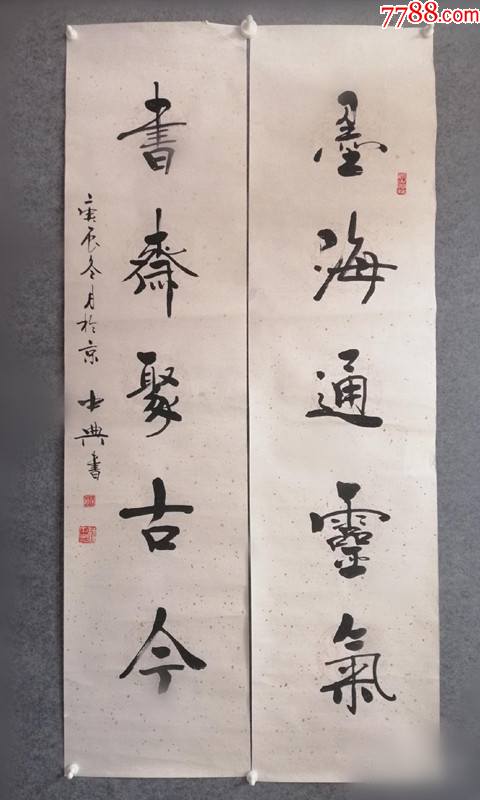 7788.com
墨海通靈氣
書齋聚古今
庚辰冬月於京
士典書